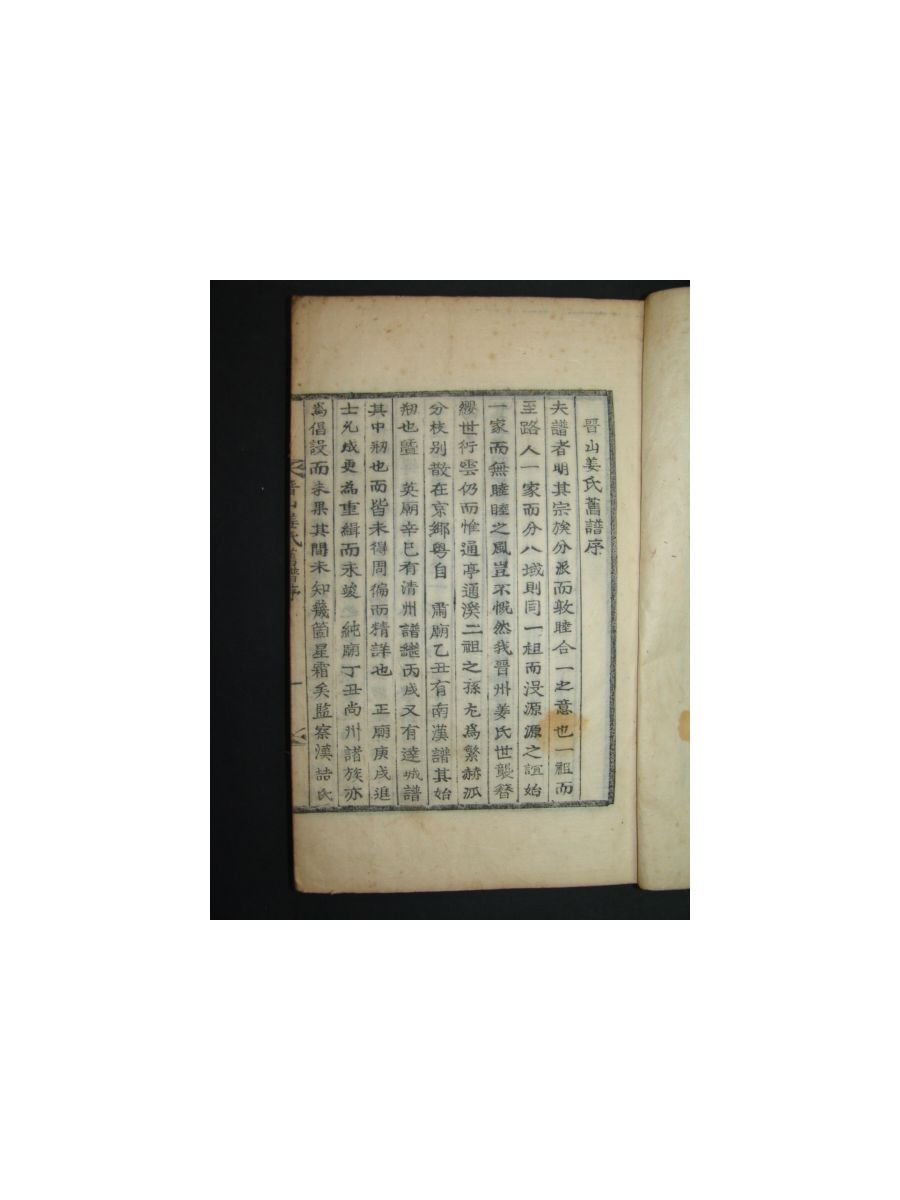 晋山姜氏舊譜序
夫譜者明其宗族分派而敦睦合一之意也一祖而
至路人一家而分八域則同一祖而浸源源之誼始
一家而無睦睦之風豈不慨然我晋州姜氏世襲簪
纓世行雲仍而惟通亭通溪二祖之孫尤爲繁赫派
分枝別散在京鄉粤自 肅廟乙丑有南漢譜其始
刱也曁 英廟辛巳有清州譜繼丙戌又有達城譜
其中刱也而皆未得周徧而精詳也 正廟庚戌進
士允成更爲重緝而未竣 純廟丁丑尚州諸族亦
爲倡設而未果其間未知幾箇星霜矣監察漢喆氏
晋山姜氏舊譜序
一